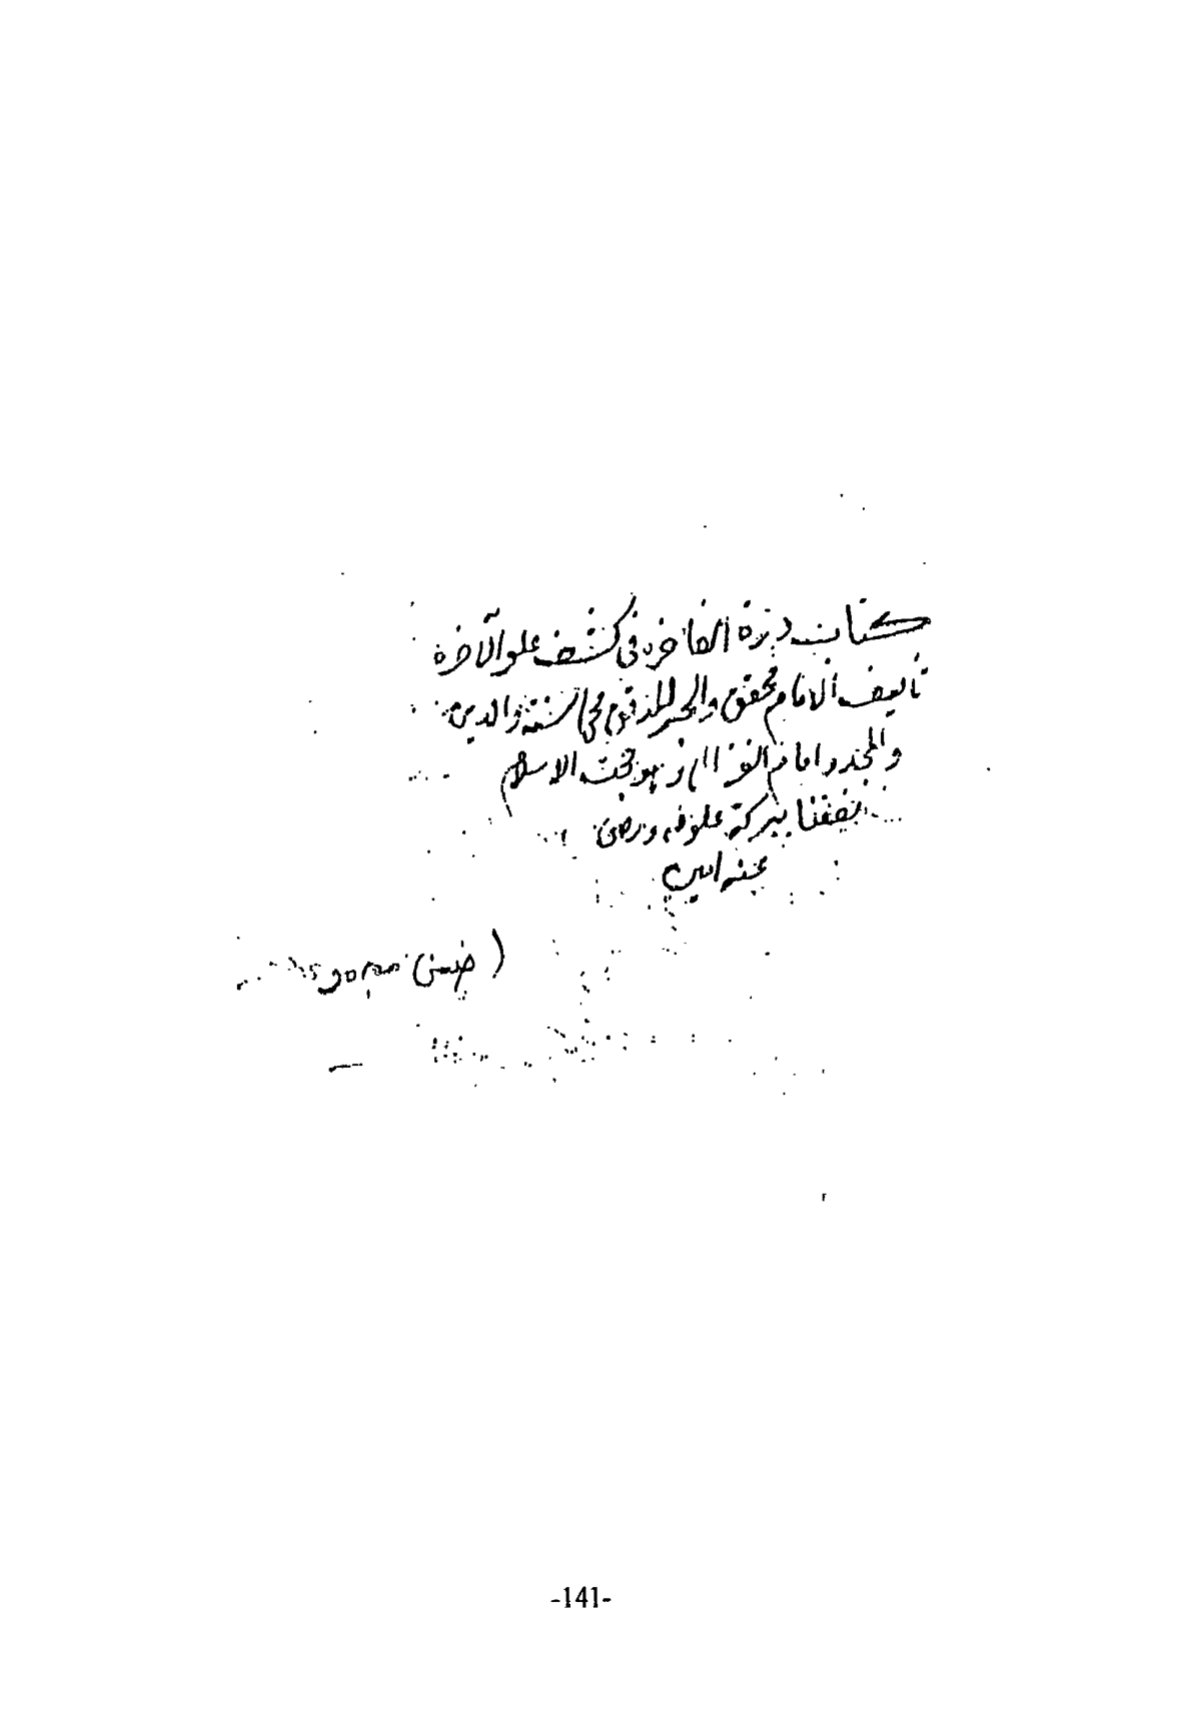 كتاب درة الفاخره في كشف علو الآخرة
تأليف الامام محقق والحبر المدقق محي السنة والدين
والمجدد امام الغزالي وهو حجت الاسلام
نفعنا ببركة علومه ورضى
عنه امين
-141-